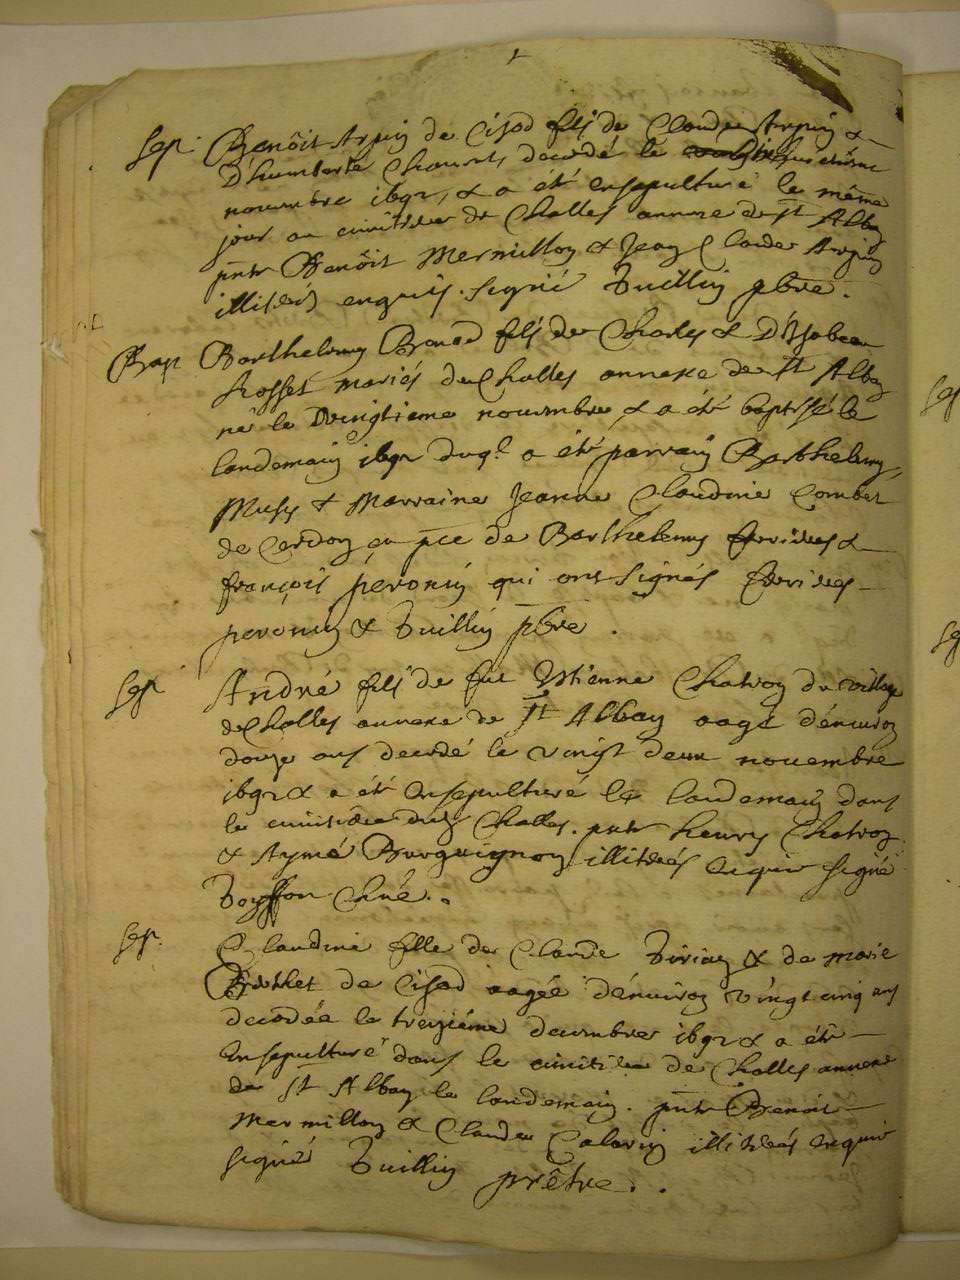 Sep. Benôit Arpin de Cisod fils de Claude Arpin &
D'humberte Chavret decedé le huictiéme
nouembre 1692, & a été ensepulturé le même
jour au cimitiere de Challes annexe de St Alban
pnts Benôit Mermillon & Jean Claude Arpin
illiterés enquis. signé Tuillin pbre.
Bap Barthelemy Benad fils de Charles & D'Isabeau
Rosset mariés de Challes annexe de St Alban
né le vingtieme nouembre & a été baptisé le
landemain 1692 duql a été parrain Barthelemy
Musy & Marraine Jeanne Claudine Combet
de Cerdon en pce de Barthelemy ferriues &
françois peronin qui ont signés ferriues
peronin & Tuillin pbre.
Sep André fils de fut Estienne Chatron du village
de Challes annexe de St Alban aagé d'énuiron
douze ans decedé le vingt deux nouembre
1692 & a été ensepulturé le landemain dans
le cimitiere dudt Challes. pnts henry Chatron
& Aymé Burguignon illiterés enquis signé
Boysson Curé.
Sep. Claudine fille de Claude Tirian & de marie
Brethet de Cisod aagée d'énuiron vingt cinq ans
decedée le treiziéme decembre 1692 & a été
Ensepulturé dans le cimitiere de Challes annexe
de St Alban le landemain. pnts Benoit
Mermillon & Claude Calarin illiterés enquis
signés Tuillin prêtre.